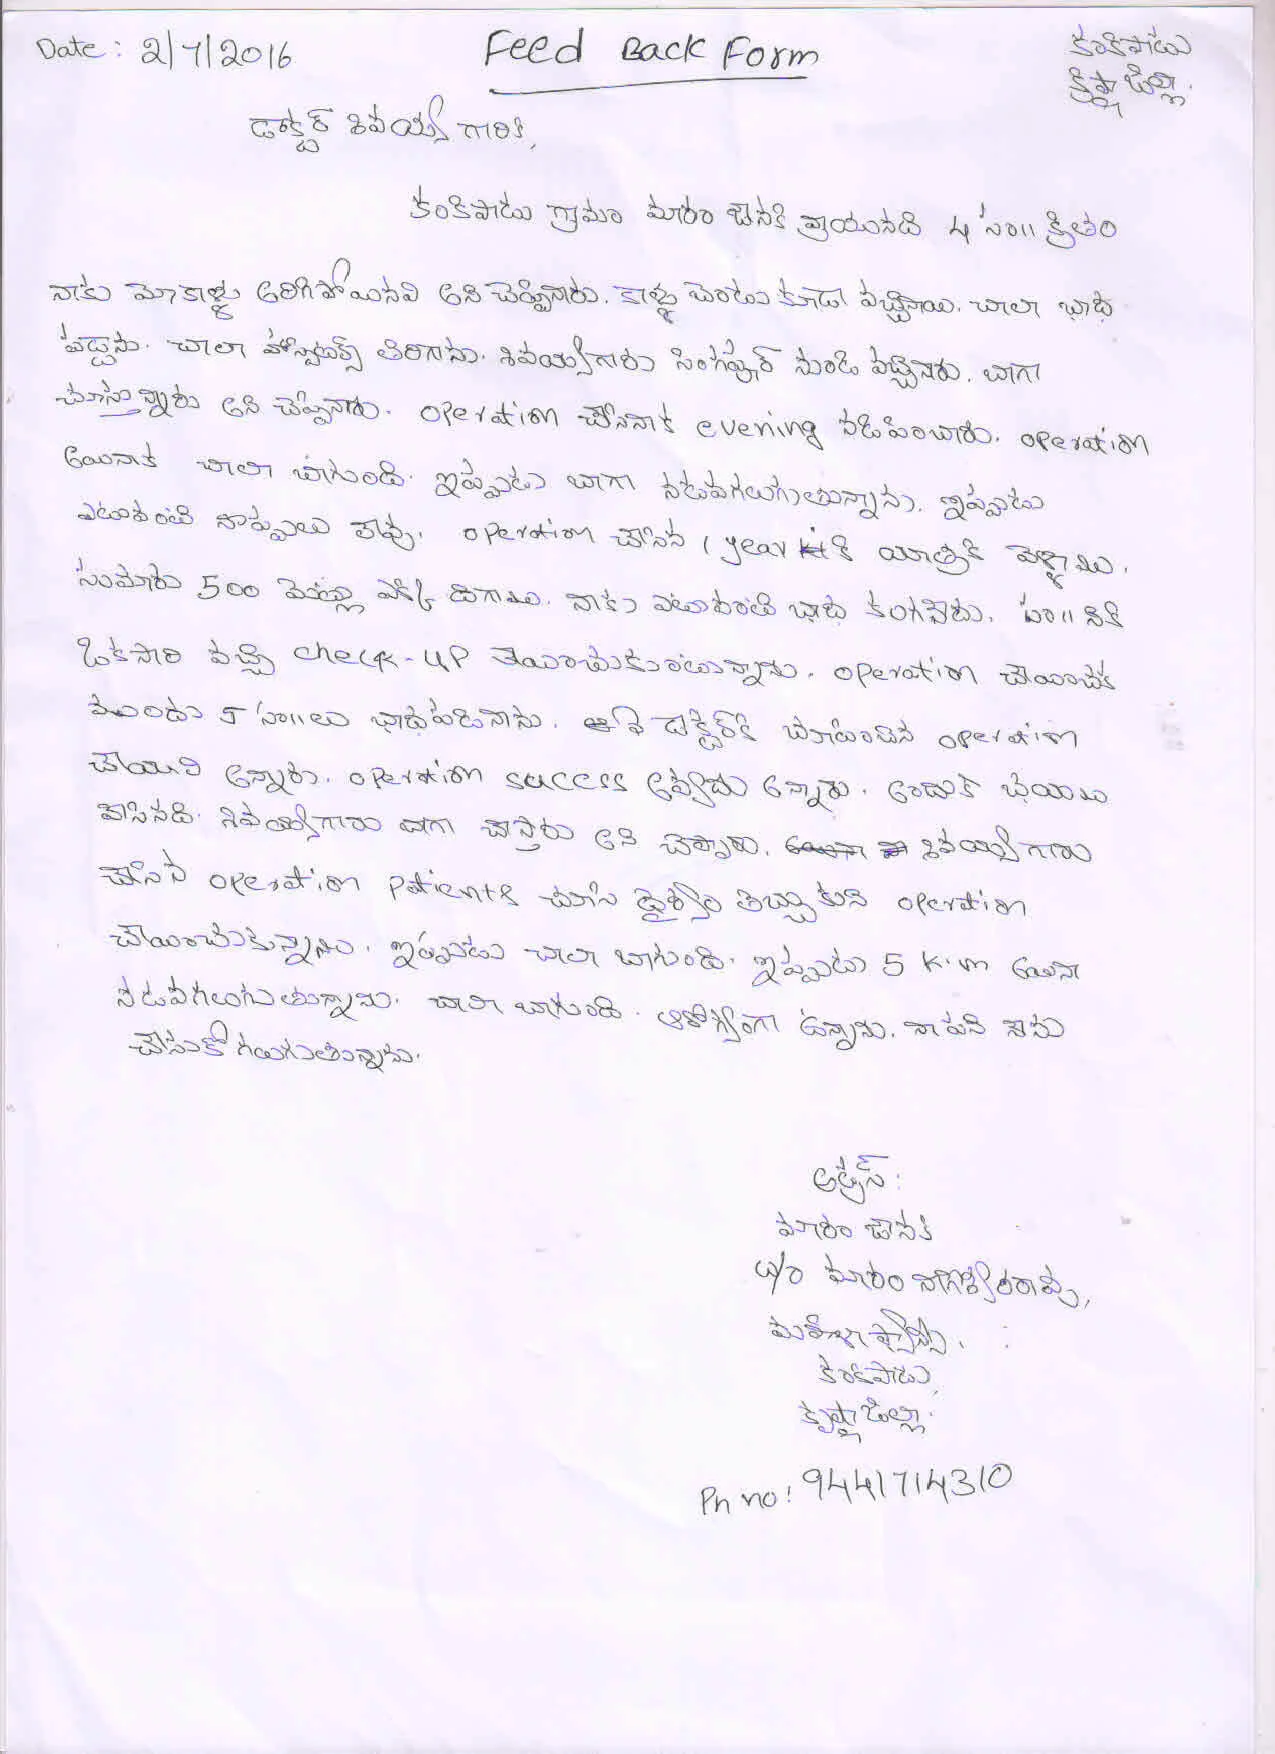 Date: 2/7/2016
Feed Back Form
కంకిపాడు
క్రిష్ణా జిల్లా.
డాక్టర్ శివయ్య గారికి,
కంకిపాడు గ్రామం మారం జానకి వ్రాయునది 4 సం॥ క్రితం
నాకు మోకాళ్ళు అరిగిపోయినవి అని చెప్పినారు. కాళ్ళు బెండు కూడా వచ్చినాయి. చాలా భాధ
పడ్డాను. చాలా హాస్పటల్స్ తిరిగాను. శివయ్యగారు సింగపూర్ నుండి వచ్చినారు. బాగా
చూస్తున్నారు అని చెప్పినారు. operation చేసినాక evening నడిపించారు. operation
అయినాక చాలా బాగుంది. ఇప్పుడు బాగా నడవగలుగుతున్నాను. ఇప్పుడు
ఎటువంటి నొప్పులు లేవు. operation చేసిన 1 year కి యాత్రకి వెళ్ళాము.
సుమారు 500 మెట్లు ఎక్కి దిగాము. నాకు ఎటువంటి భాధ కలగలేదు. సం॥ నికి
ఒకసారి వచ్చి check-up చేయించుకుంటున్నాను. operation చేయించక
ముందు 5 సం॥లు భాధపడినాను. ఏ డాక్టర్‌కి చూపించిన operation
చేయాలి అన్నారు. operation success అవ్వదు అన్నారు. అందుకే భయము
వేసినది. శివయ్యగారు బాగా చేస్తారు అని చెప్పారు. శివయ్య గారు
చేసిన operation patients చూసి ధైర్యం తెచ్చుకుని operation
చేయించుకున్నాను. ఇప్పుడు చాలా బాగుంది. ఇప్పుడు 5 k.m అయినా
నడవగలుగుతున్నాను. చాలా బాగుంది. ఆరోగ్యంగా ఉన్నాను. నా పని నేను
చేసుకోగలుగుతున్నాను.
అడ్రస్:
మారం జానకి
w/o మారం నాగేశ్వరరావు,
కంకిపాడు,
కృష్ణా జిల్లా.
Ph no: 9441714310